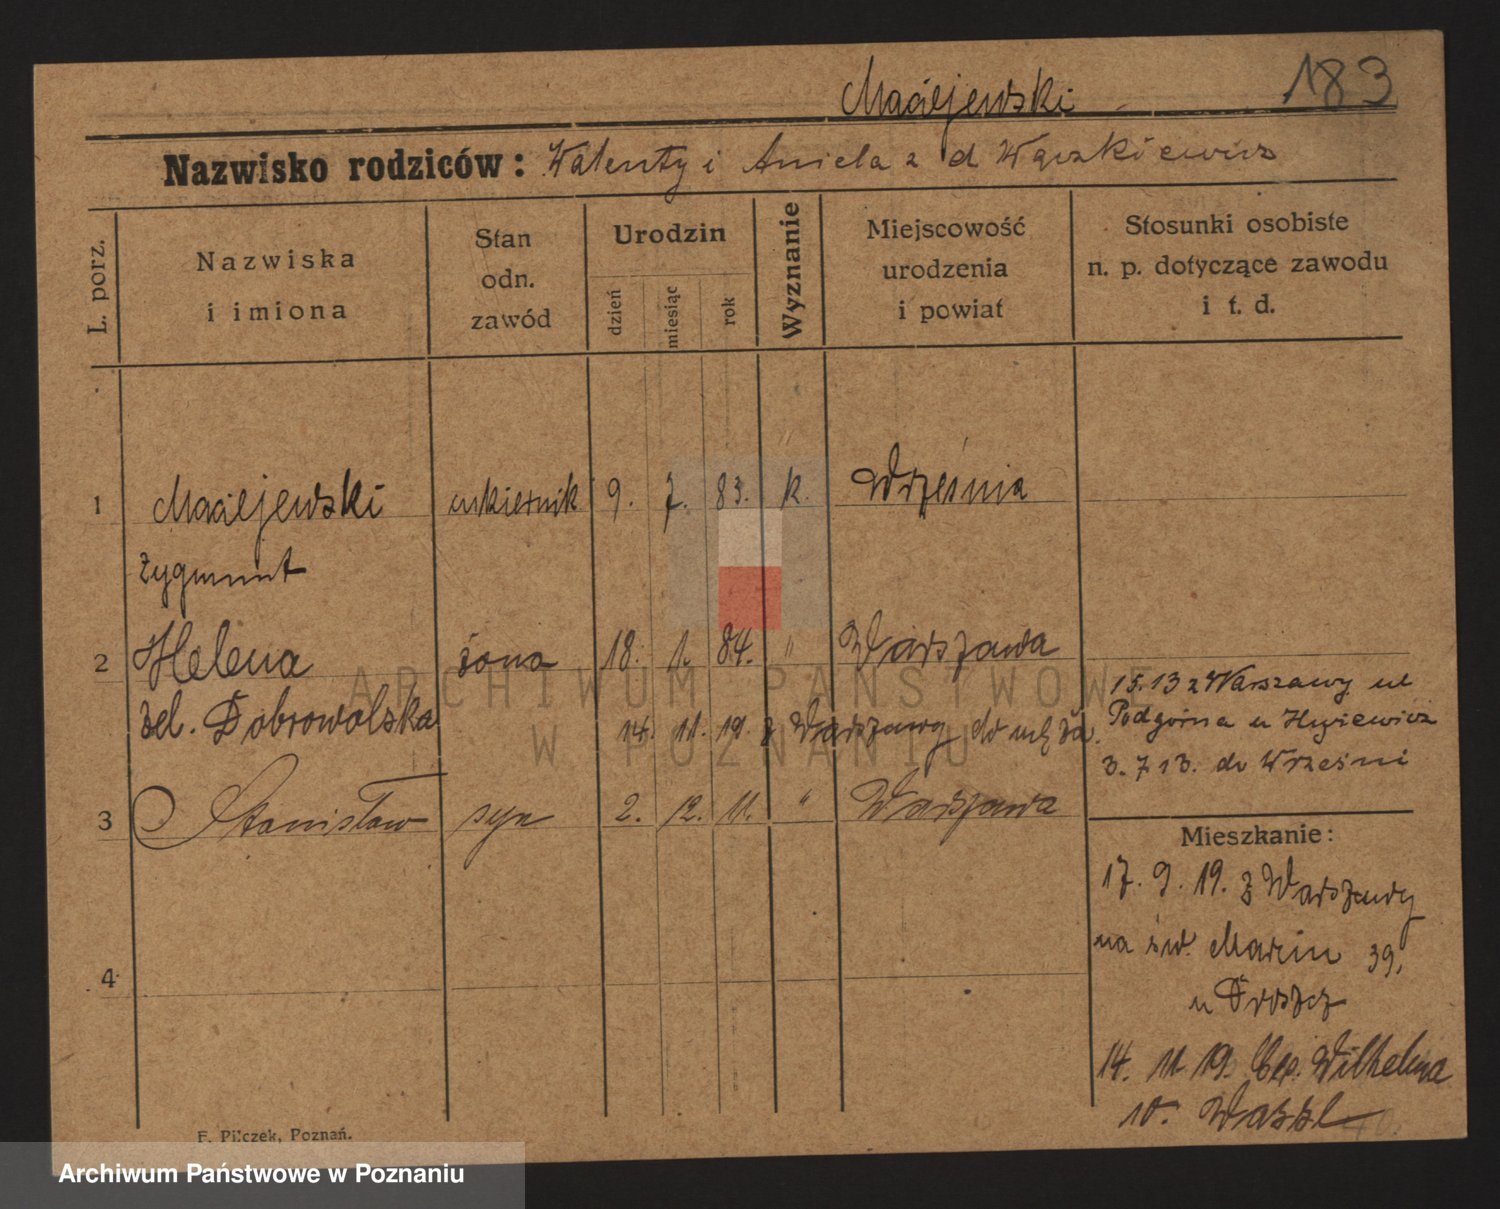 Maciejewski 183
Nazwisko rodziców: Walenty i Aniela z d Wyszkiewicz
L. porz.
Nazwiska
i imiona
Stan
odn.
zawód
Urodzin
dzień
miesiąc
rok
Wyznanie
Miejscowość
urodzenia
i powiat
Stosunki osobiste
n. p. dotyczące zawodu
i t. d.
1 Maciejewski cukiernik 9. 7. 83. k. Września
Zygmunt
2 Helena żona 18. 1. 84. " Warszawa
zel. Dobrowolska
14. 11. 19. z Warszawy do męża.
15.13 z Warszawy ul
Podgórna u
3. 7 13. do Wrześni
3 Stanisław syn 2. 12. 11. " Warszawa
Mieszkanie:
17. 9. 19. z Warszawy
na św. Marcin 39,
u
14. 11 19. Wilhelma
10.
4
F. Pilczek, Poznań.
ARCHIWUM PAŃSTWOWE
W POZNANIU
Archiwum Państwowe w Poznaniu